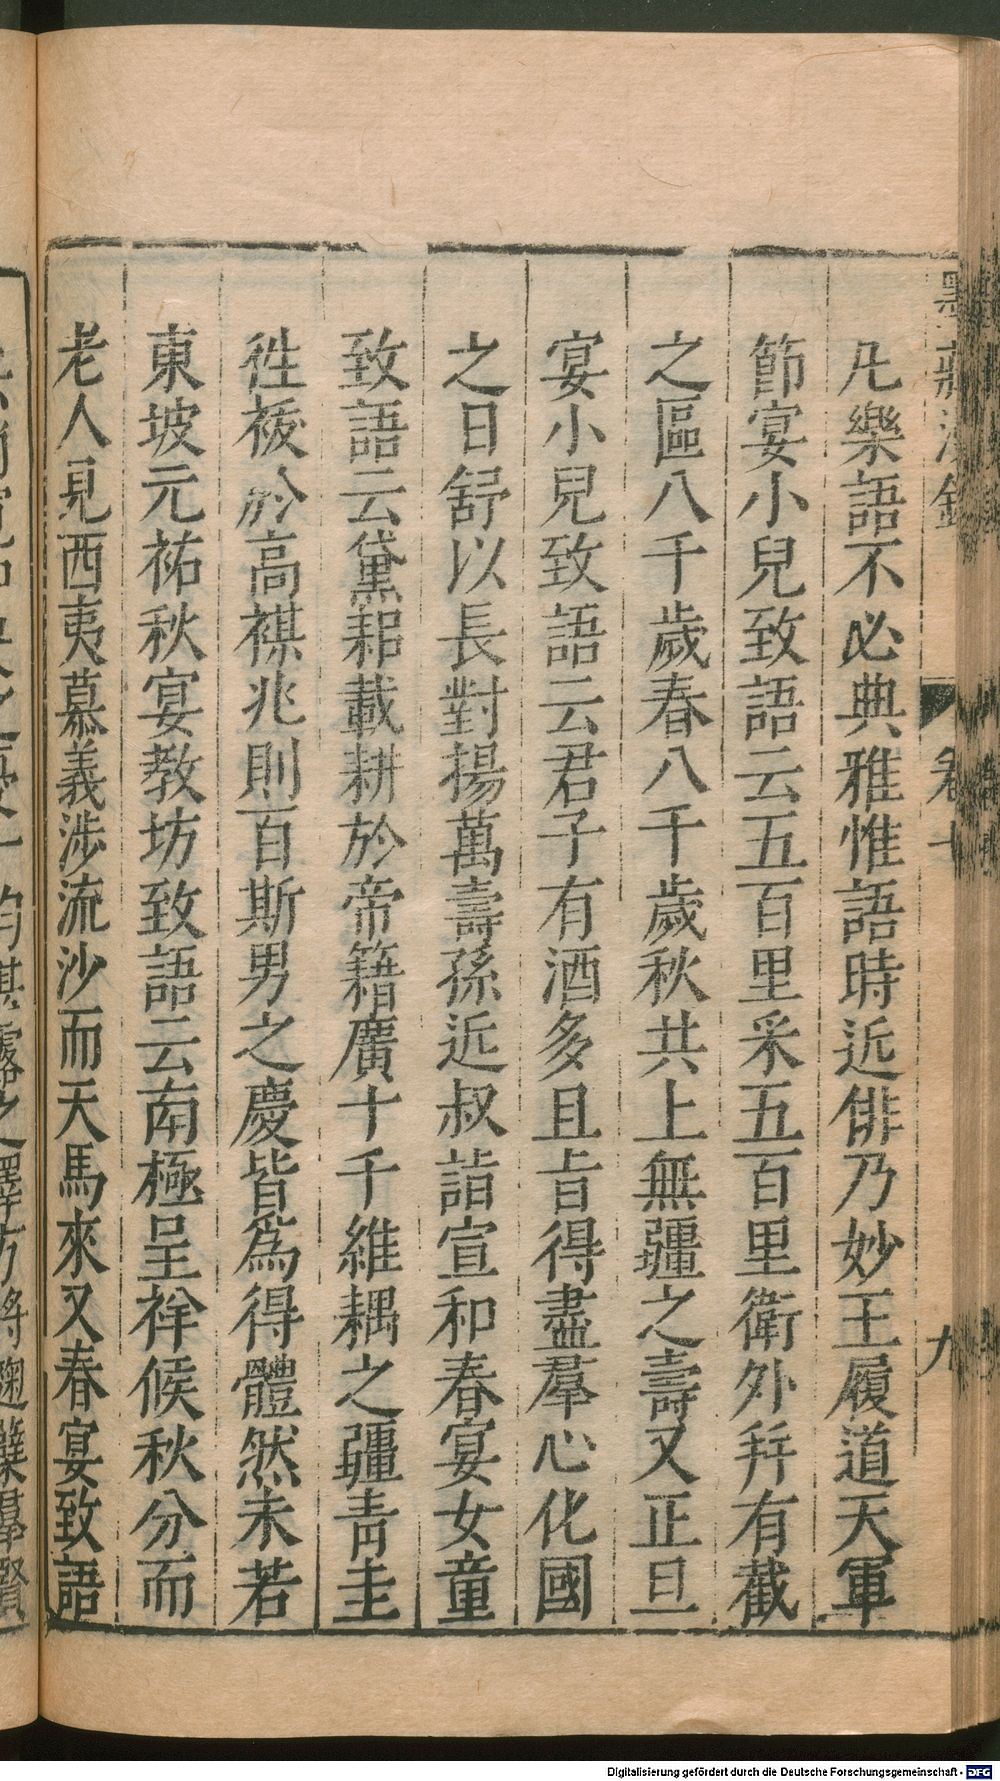 凡樂語不必典雅惟語時近俳乃妙王履道天軍
節宴小兒致語云五百里采五百里衛外幷有截
之區八千歲春八千歲秋共上無疆之壽又正旦
宴小兒致語云君子有酒多且旨得盡羣心化國
之日舒以長對揚萬壽孫近叔詣宣和春宴女童
致語云黛耜載耕於帝籍廣十千維耦之疆青圭
徃祓於高禖兆則百斯男之慶皆爲得體然未若
東坡元祐秋宴教坊致語云南極呈祥候秋分而
老人見西夷慕義涉流沙而天馬來又春宴致語
卷七
九
Digitalisierung gefördert durch die Deutsche Forschungsgemeinschaft - DFG